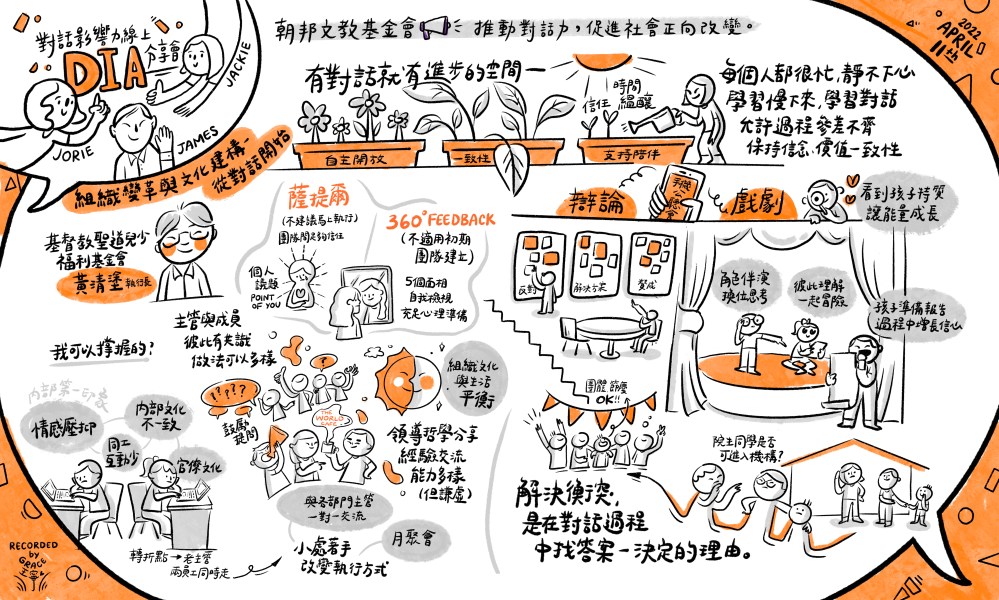 對話影響力線上
分享會
DIA
JORIE
JAMES
JACKIE
組織變革與文化建構-
從對話開始
朝邦文教基金會 推動對話力，促進社會正向改變。
2022
APRIL
11th
有對話就有進步的空間一
時間
信任 醞釀
自主開放
一致性
支持陪伴
每個人都很忙，靜不下心
學習慢下來，學習對話
允許過程參差不齊
保持信念、價值一致性
基督教聖道兒少
福利基金會
黃清塗 執行長
薩提爾
(不建議馬上執行)
團隊間足夠信任
個人
議題
POINT
OF YOU
360°FEEDBACK
(不適用初期
團隊建立)
5個面相
自我檢視
充足心理準備
辯論
手機
公聽會
戲劇
看到孩子特質
讓能量成長
反對
解決方案
贊成
角色伴演
換位思考
彼此理解
一起冒險
孩子準備報告
過程中增長信心
團體 節慶
OK!!
主管與成員
彼此有共識
做法可以多樣
我可以掌握的?
內部第一印象
情感壓抑
內部文化
不一致
同工
互動少
官僚文化
轉折點→老主管
兩員工同時走
!????
?
鼓勵
提問
THE
WORLD
CAFE
組織文化
與生活
平衡
領導哲學分享
經驗交流
能力多樣
(但謙虛)
與各部門主管
一對一交流
月聚會
小處著手
改變執行方式
院生同學是否
可進入機構?
解決衝突，
是在對話過程
中找答案一決定的理由。
RECORDED
by
GRACE